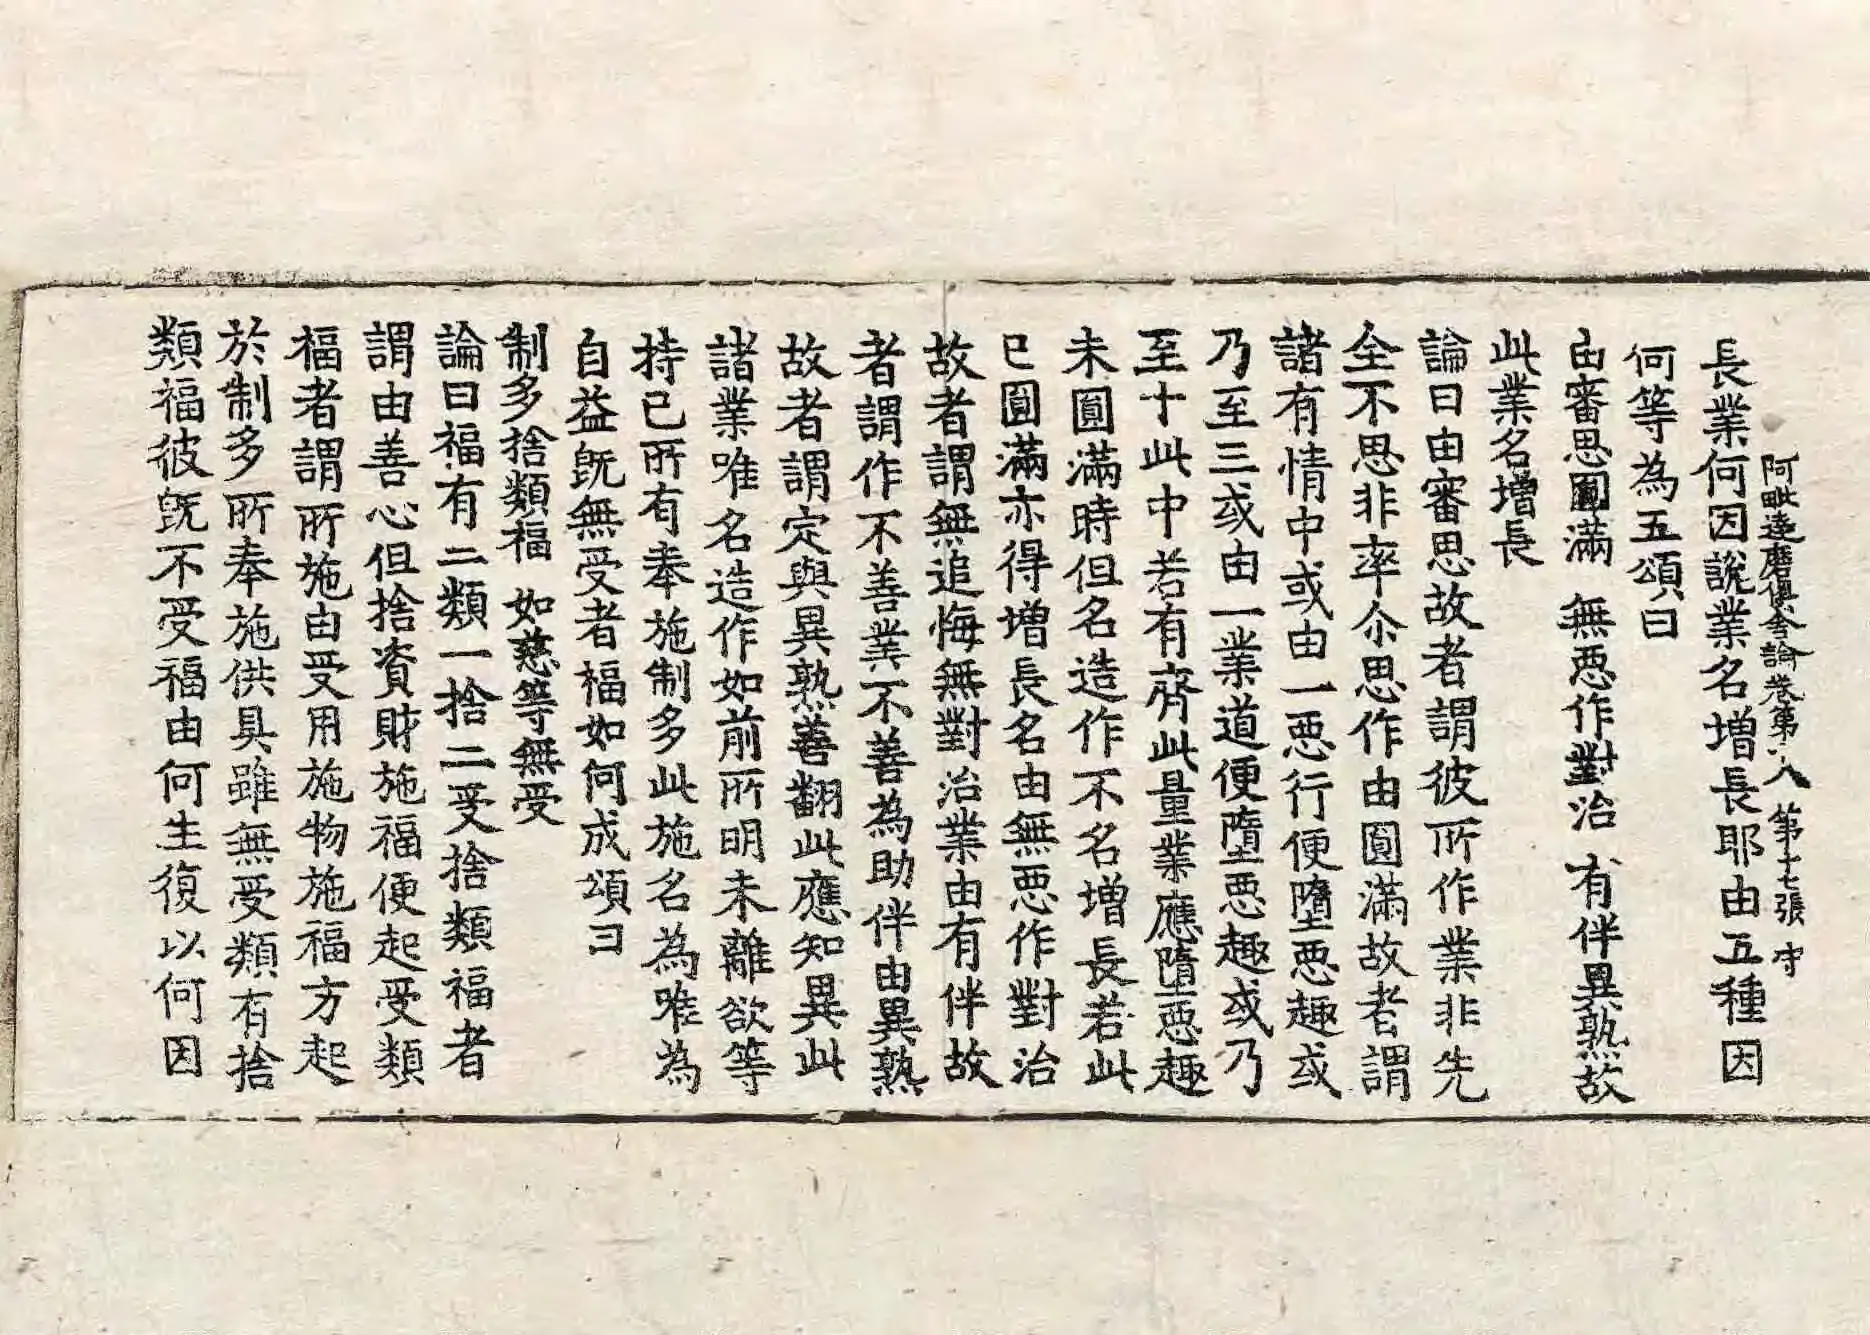 阿毗達磨俱舍論卷第十八　第十七張　守
長業何因說業名增長耶由五種因
何等為五頌曰
由審思圓滿　無惡作對治　有伴異熟故
此業名增長
論曰由審思故者謂彼所作業非先
全不思非率尒思作由圓滿故者謂
諸有情中或由一惡行便墮惡趣或
乃至三或由一業道便墮惡趣或乃
至十此中若有齊此量業應墮惡趣
未圓滿時但名造作不名增長若此
已圓滿亦得增長名由無惡作對治
故者謂無追悔無對治業由有伴故
者謂作不善業不善為助伴由異熟
故者謂定與異熟善翻此應知異此
諸業唯名造作如前所明未離欲等
持已所有奉施制多此施名為唯為
自益既無受者福如何成頌曰
制多捨類福　如慈等無受
論曰福有二類一捨二受捨類福者
謂由善心但捨資財施福便起受類
福者謂所施田受用施物施福方起
於制多所奉施供具雖無受類有捨
類福彼既不受福由何生復以何因